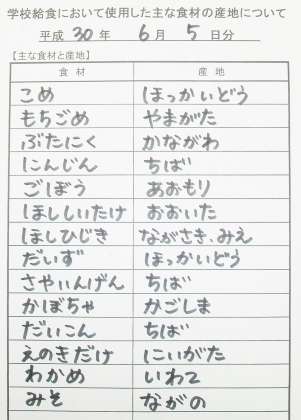 学校給食において使用した主な食材の産地について
平成 30 年 6 月 5 日分
【主な食材と産地】
食材 産地
こめ ほっかいどう
もちごめ やまがた
ぶたにく かながわ
にんじん ちば
ごぼう あおもり
ほししいたけ おおいた
ほしひじき ながさき、みえ
だいず ほっかいどう
さやいんげん ちば
かぼちゃ かごしま
だいこん ちば
えのきだけ にいがた
わかめ いわて
みそ ながの